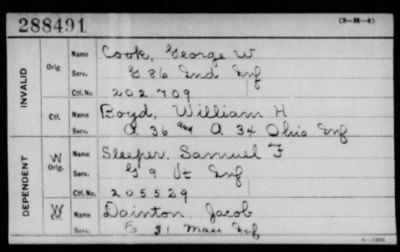 288491
(3-H-4)
INVALID
Orig
Name Cook, George W
Serv. G 86 Ind Inf
Ctf. No. 202709
Ctf.
Name Boyd, William H
Serv. A 36 and A 34 Ohio Inf
DEPENDENT
W Orig.
Name Sleeper, Samuel F
Serv. G 9 Vt Inf
Ctf. No. 205529
W Ctf.
Name Dainton, Jacob
E 31 Mass Inf